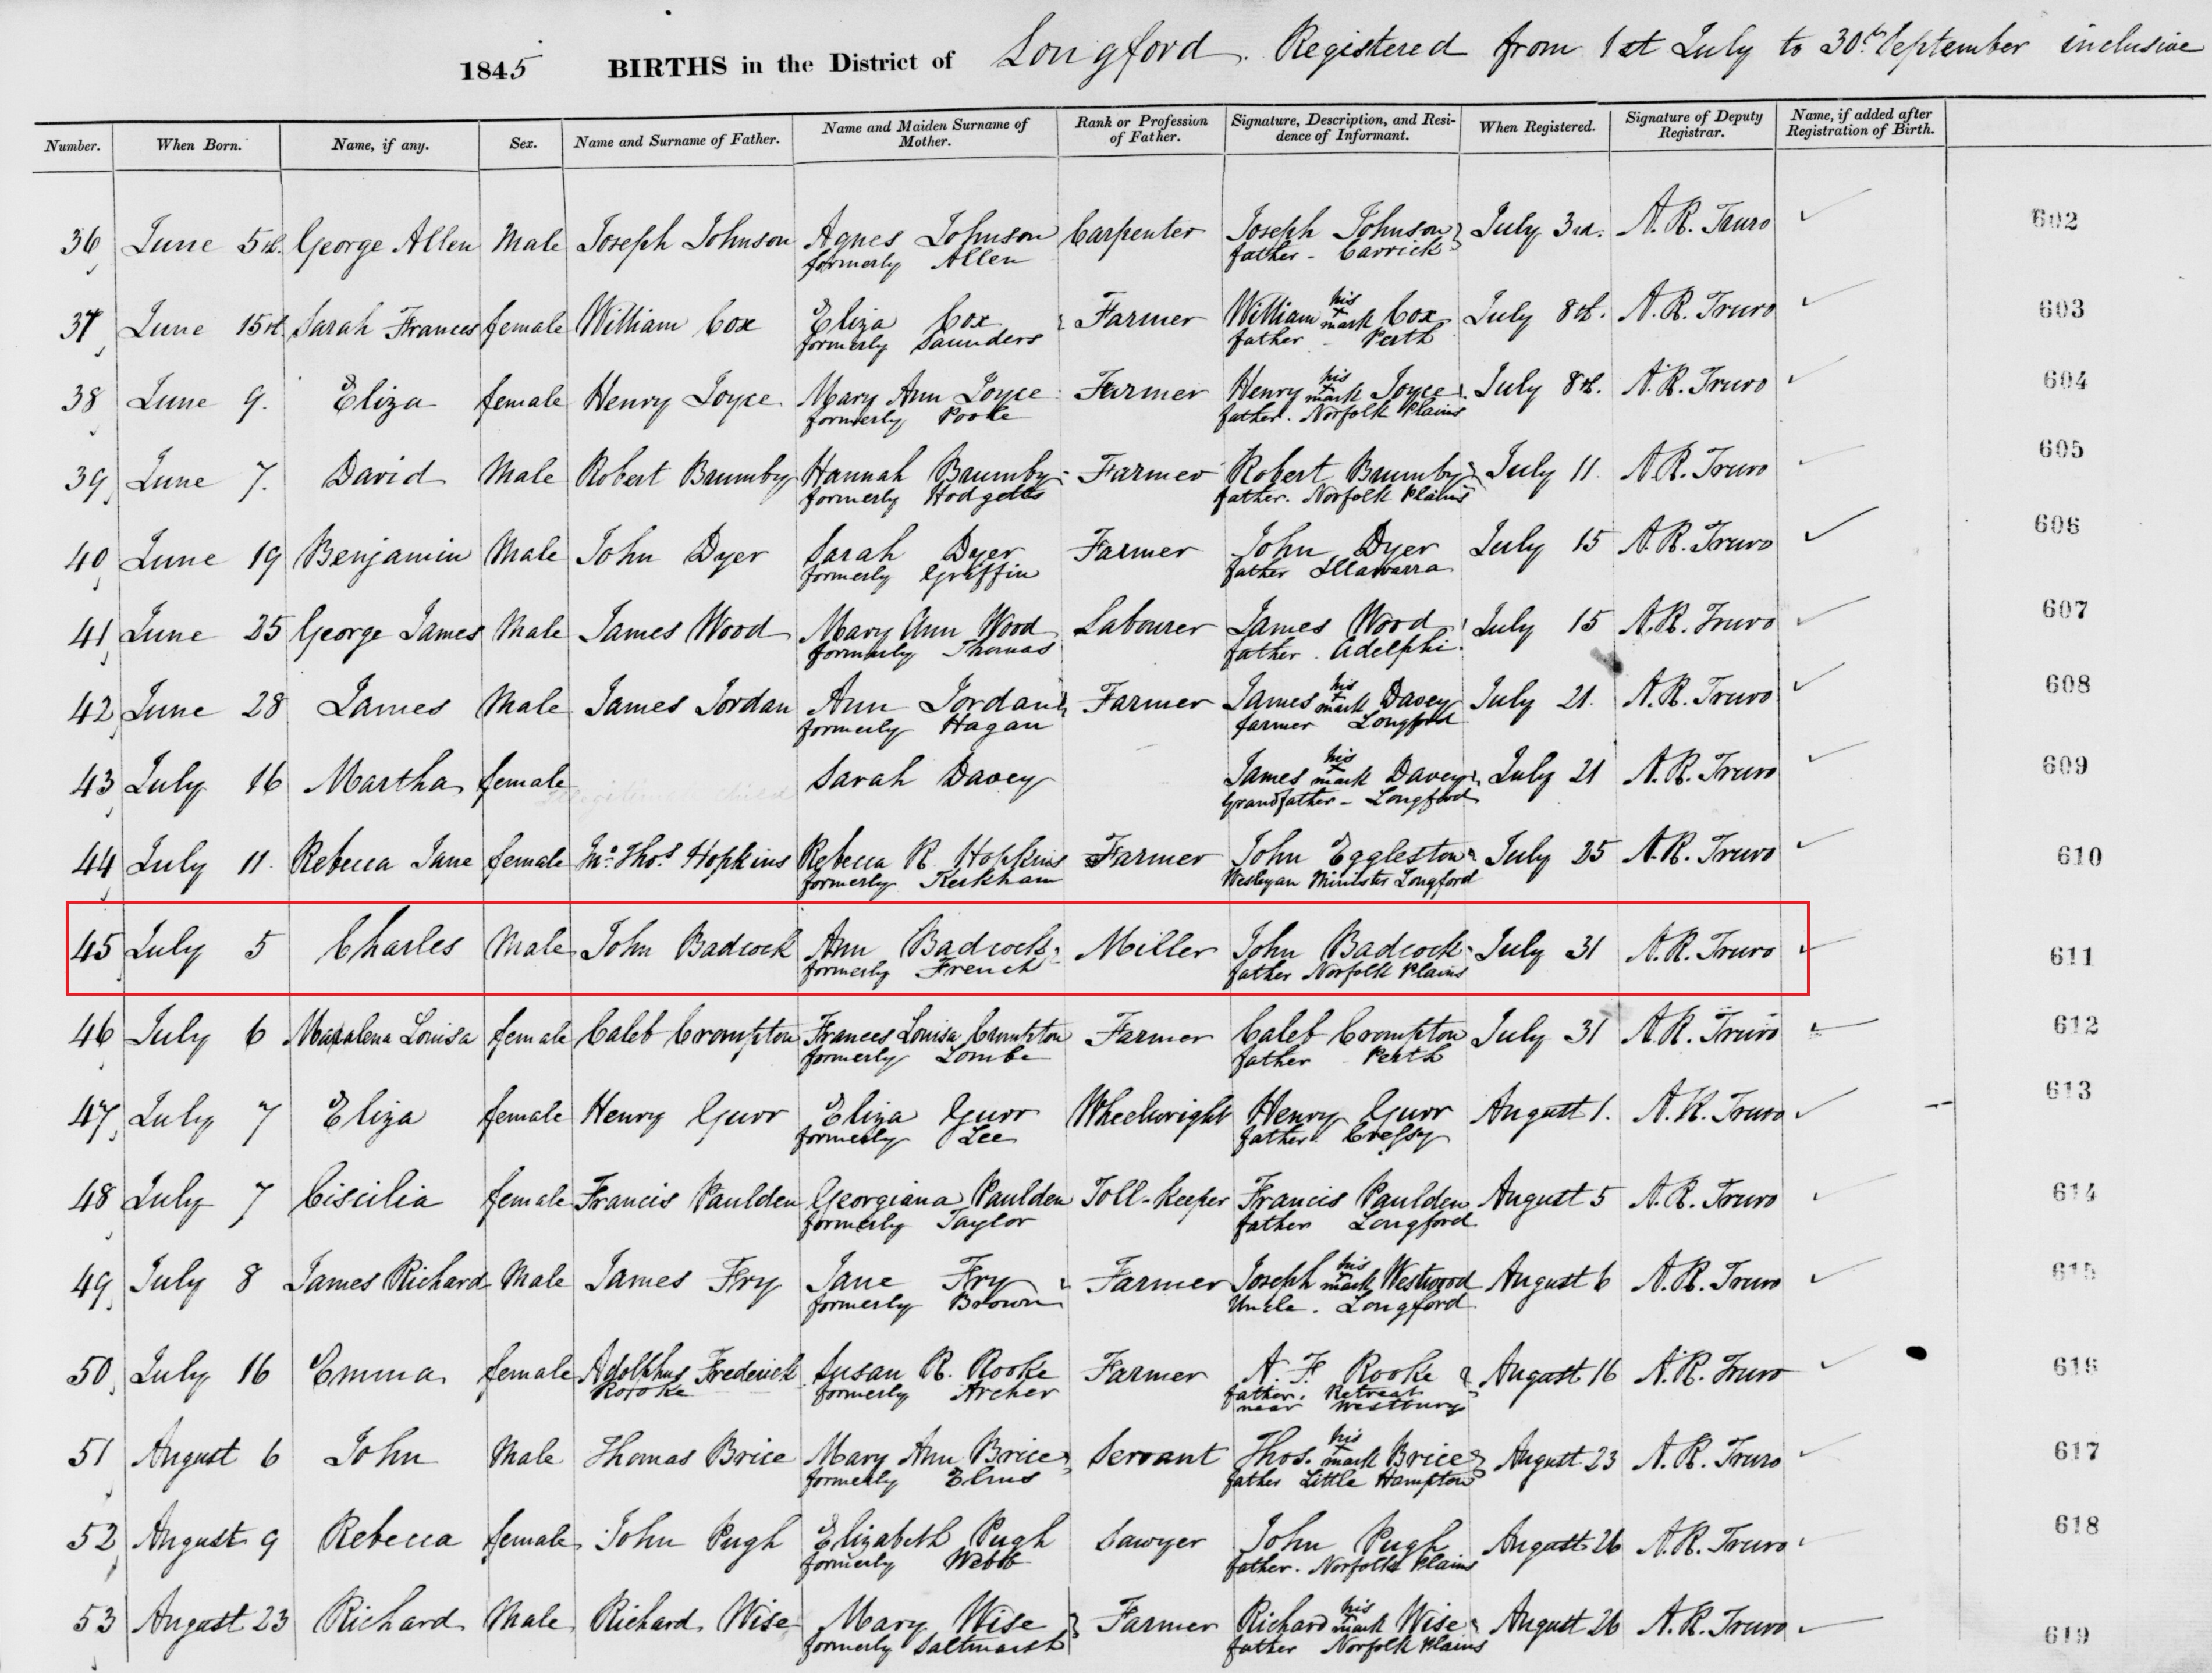 1845 BIRTHS in the District of Longford. Registered from 1st July to 30th September inclusive
Number. When Born. Name, if any. Sex. Name and Surname of Father. Name and Maiden Surname of Mother. Rank or Profession of Father. Signature, Description, and Residence of Informant. When Registered. Signature of Deputy Registrar. Name, if added after Registration of Birth.
36 June 5th. George Allen Male Joseph Johnson Agnes Johnson Carpenter Joseph Johnson July 3rd. A. R. Truro 602
formerly Allen father - Carrick
37 June 15th Sarah Frances female William Cox Eliza Cox Farmer William his x mark Cox July 8th. A. R. Truro 603
formerly Saunders father - Perth
38 June 9. Eliza female Henry Joyce Mary Ann Joyce Farmer Henry his x mark Joyce July 8th. A. R. Truro 604
formerly Pooke father. Norfolk Plains
39 June 7. David Male Robert Brumby Hannah Brumby Farmer Robert Brumby July 11. A. R. Truro 605
formerly Hodgetts father. Norfolk Plains
40 June 19 Benjamin Male John Dyer Sarah Dyer Farmer John Dyer July 15 A. R. Truro 606
formerly Griffin father Illawarra
41 June 25 George James Male James Wood Mary Ann Wood Labourer James Wood July 15 A. R. Truro 607
formerly Thomas father. Adelphi.
42 June 28 James Male James Jordan Ann Jordan Farmer James his x mark Davey July 21. A. R. Truro 608
formerly Hagan farmer Longford
43 July 16 Martha female Sarah Davey James his x mark Davey July 21 A. R. Truro 609
Grandfather - Longford
44 July 11 Rebecca Jane female Mr. Thos. Hopkins Rebecca R. Hopkins Farmer John Eggleston July 25 A. R. Truro 610
formerly Kerkham Wesleyan Minister Longford
45 July 5 Charles Male John Badcock Ann Badcock Miller John Badcock July 31 A. R. Truro 611
formerly French father Norfolk Plains
46 July 6 Louisa female Caleb Crompton Frances Louisa Crompton Farmer Caleb Crompton July 31 A. R. Truro 612
formerly Lombe father Perth
47 July 7 Eliza female Henry Gurr Eliza Gurr Wheelwright Henry Gurr August 1. A. R. Truro 613
formerly Lee father Cressy
48 July 7 Ciscilia female Francis Paulden Georgiana Paulden Toll-Keeper Francis Paulden August 5 A. R. Truro 614
formerly Taylor father Longford
49 July 8 James Richard Male James Fry Jane Fry Farmer Joseph his x mark Westwood August 6 A. R. Truro 615
formerly Brown Uncle. Longford
50 July 16 Emma female Adolphus Frederick Susan R. Rooke Farmer A. F. Rooke August 16 A. R. Truro 616
Rooke formerly Archer father. Retreat
near Westbury
51 August 6 John Male Thomas Brice Mary Ann Brice Servant Thos. his x mark Brice August 23 A. R. Truro 617
formerly Elms father Little Hampton
52 August 9 Rebecca female John Pugh Elizabeth Pugh Sawyer John Pugh August 26 A. R. Truro 618
formerly Webb father. Norfolk Plains
53 August 23 Richard Male Richard Wise Mary Wise Farmer Richard his x mark Wise August 26 A. R. Truro 619
formerly Saltmarsh father Norfolk Plains